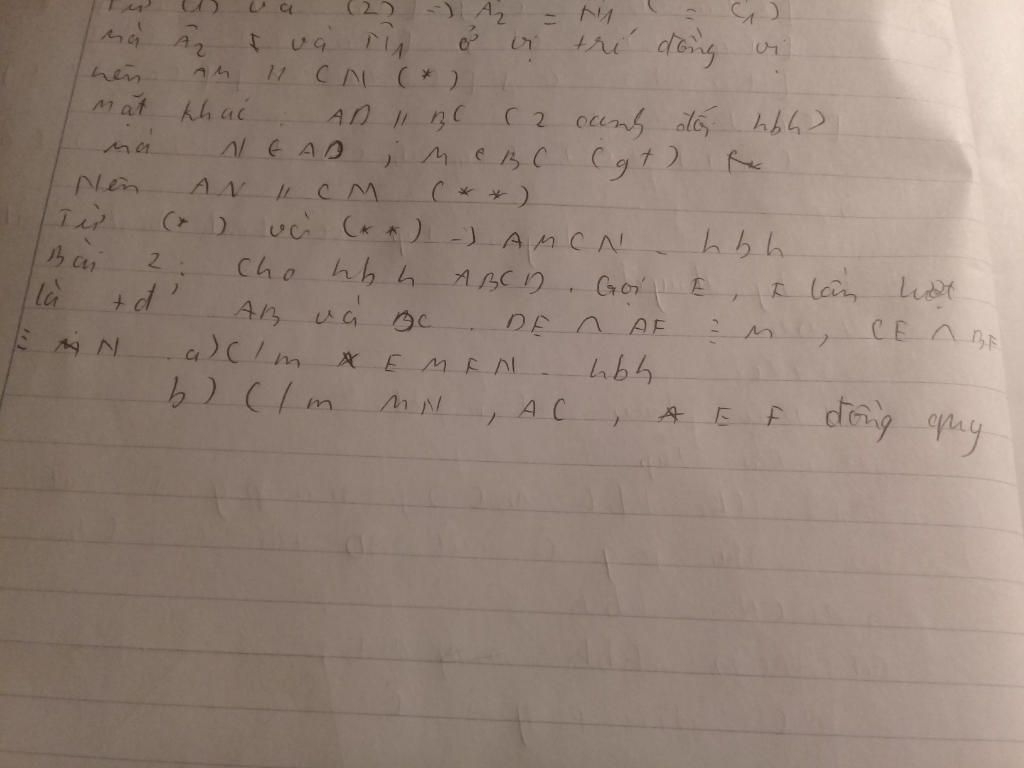 Từ (1) và (2) => Â2 = N1 ( = C1)
mà Â2 và N1 ở vị trí đồng vị
nên AM // CN (*)
mặt khác : AD // BC ( 2 cạnh đối hbh)
mà N ∈ AD ; M ∈ BC (gt)
Nên AN // CM (**)
Từ (*) và (**) => AMCN - hbh
Bài 2 : Cho hbh ABCD . Gọi E , F lần lượt
là tđ' AB và DC . DE ∩ AF ≡ M , CE ∩ BF
≡ N a) C/m EMFN - hbh
b) C/m MN , AC , EF đồng quy